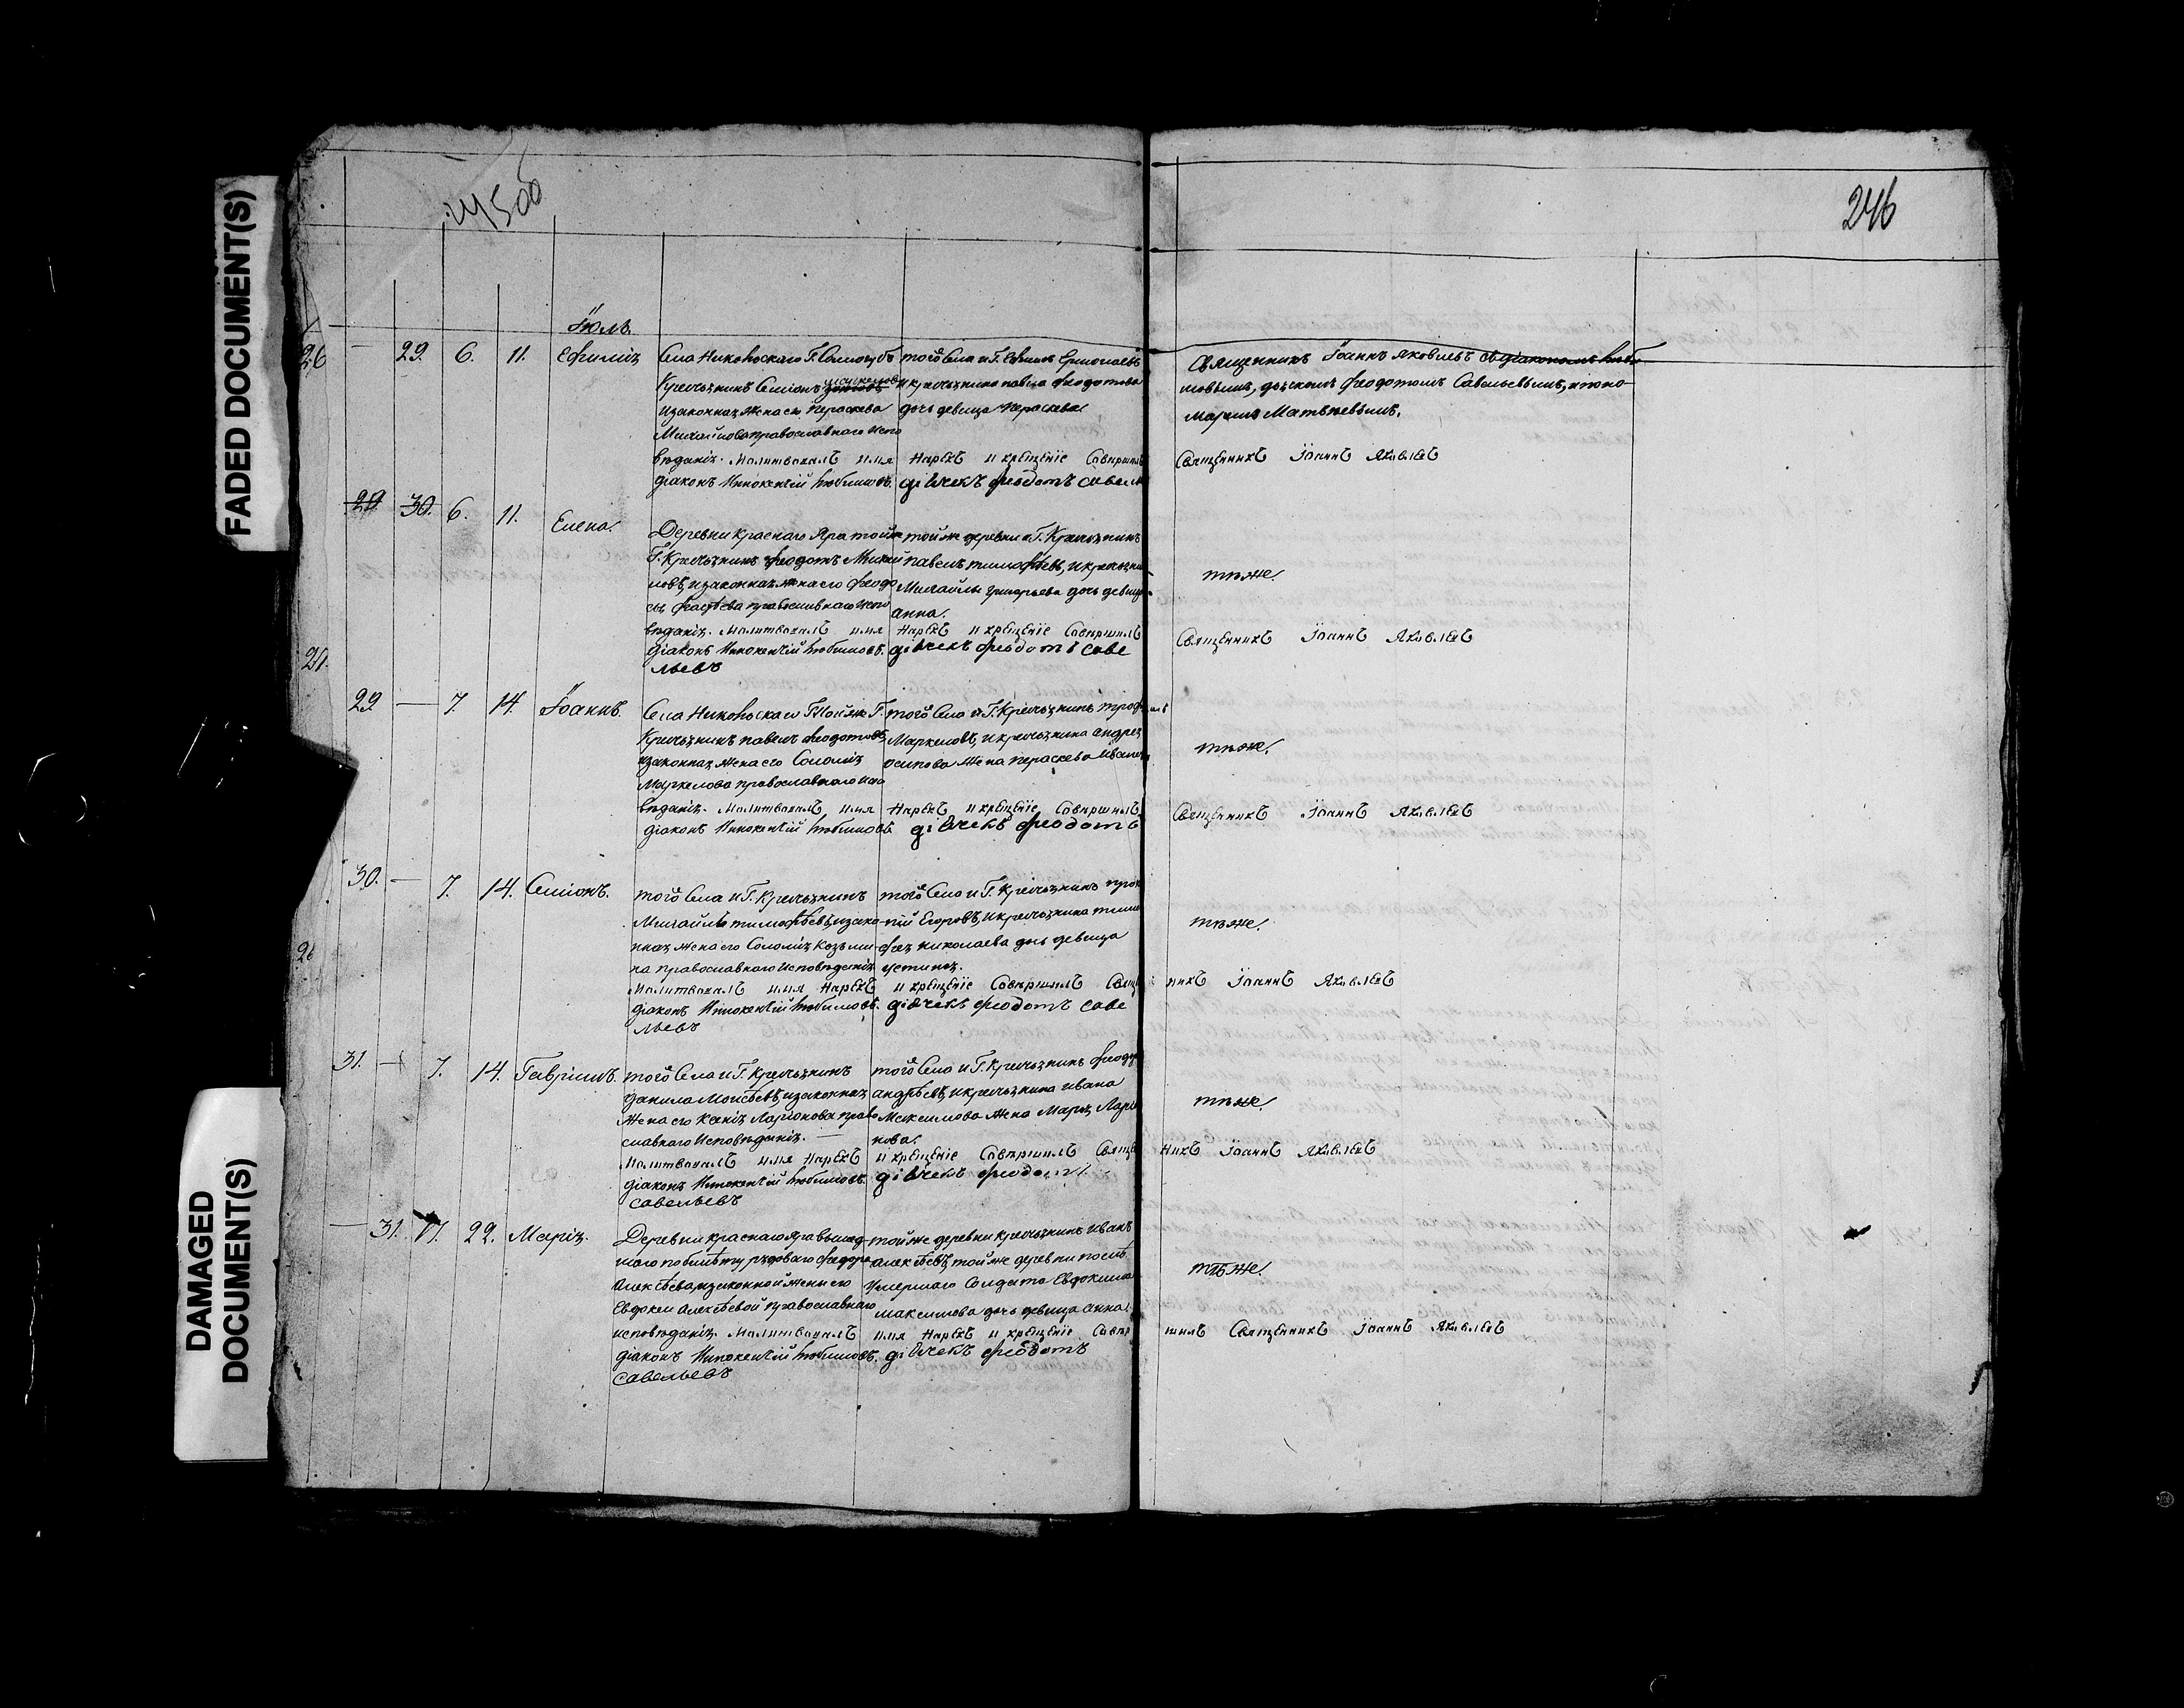 FADED DOCUMENT(S)
245об
246
Іюль.
26 — 29. 6. 11. Ефимія
Села Никольскаго Г. Самозубъ
Крестьянинъ Симіонъ
изаконная жена его Параскева
Михайлова православнаго испо
вѣданія. Молитвовалъ имя
діаконъ Иннокентій Любимовъ.
того Села и Г. Ефимъ Ермолаевъ
и крестьянина павла Феодотова
дочь девица Параскева
Нарекъ и крещеніе Соверши
дівчекъ феодотъ савел
Священникъ Іоаннъ Яковлевъ съ діакономъ Люби
мовымъ, дьячкомъ Феодотомъ Савельевымъ, и поно-
маремъ Матвѣевымъ.
Священникъ Іоаннъ Яковлевъ
29. 30. 6. 11. Елена.
Деревни Краснаго Яра той же
Г. Крестьянинъ Феодотъ Михай
ловъ, изаконная жена его Феодо
сья православнаго испо
вѣданія. Молитвовалъ имя
діаконъ Иннокентій Любимовъ.
льевъ
той же деревни и Г. Крестьянинъ
павелъ тимофѣевъ, и крестьяни
Михайлы Григорьева дочь девица
анна.
Нарекъ и крещеніе Совершилъ
дівчекъ феодотъ саве
тѣже.
Священникъ Іоаннъ Яковлевъ
29 — 7. 14. Іоаннъ.
Села Никольскаго Той же Г.
Крестьянинъ павелъ Феодотовъ,
изаконная жена его Соломія
Маркелова православнаго испо
вѣданія. Молитвовалъ имя
діаконъ Иннокентій Любимовъ
того Села и Г. Крестьянинъ трофимъ
Маркеловъ, и крестьянина андрея
осипова жена параскева Иванова
Нарекъ и крещеніе Совершилъ
дівчекъ феодотъ
тѣже.
Священникъ Іоаннъ Яковлевъ
30. — 7. 14. Симіонъ.
того Села и Г. Крестьянинъ
Михайло тимофѣевъ, изако-
нная жена его Соломія Козьми
на православнаго исповѣданія
Молитвовалъ имя Нарекъ
діаконъ Иннокентій Любимовъ.
льевъ
того Села и Г. Крестьянинъ
Егоровъ, и крестьянина тимо
фея николаева дочь девица
устинья.
и крещеніе Совершилъ Свяще
дівчекъ феодотъ саве
тѣже.
никъ Іоаннъ Яковлевъ
31. — 7. 14. Гавріилъ.
того Села и Г. Крестьянинъ
данила Моисѣевъ, изаконная
жена его Ксенія Ларіонова право
славнаго Исповѣданія. —
Молитвовалъ имя Нарекъ
діаконъ Иннокентій Любимовъ.
савельевъ
того Села и Г. Крестьянинъ Феодоръ
андрѣевъ, и крестьянина ивана
Максимова жена Марья Ларіо
нова.
и крещеніе Совершилъ Свяще
дівчекъ феодотъ
тѣже.
никъ Іоаннъ Яковлевъ
— 31. 17. 22. Марія.
Деревни краснаго Яра вышед-
шаго побилѣту, рядоваго Федора
Алексѣева, изаконной жены его
Евдокеи Алексѣевой православнаго
исповѣданія. Молитвовалъ
діаконъ Иннокентій Любимовъ.
савельевъ
той же деревни Крестьянинъ Иванъ
алексѣевъ, той же деревни послѣ
Умершаго Солдата Евдокима
максимова дочь девица анна.
имя Нарекъ и крещеніе Совер
дівчекъ феодотъ
тѣже.
шилъ Священникъ Іоаннъ Яковлевъ
DAMAGED
DOCUMENT(S)